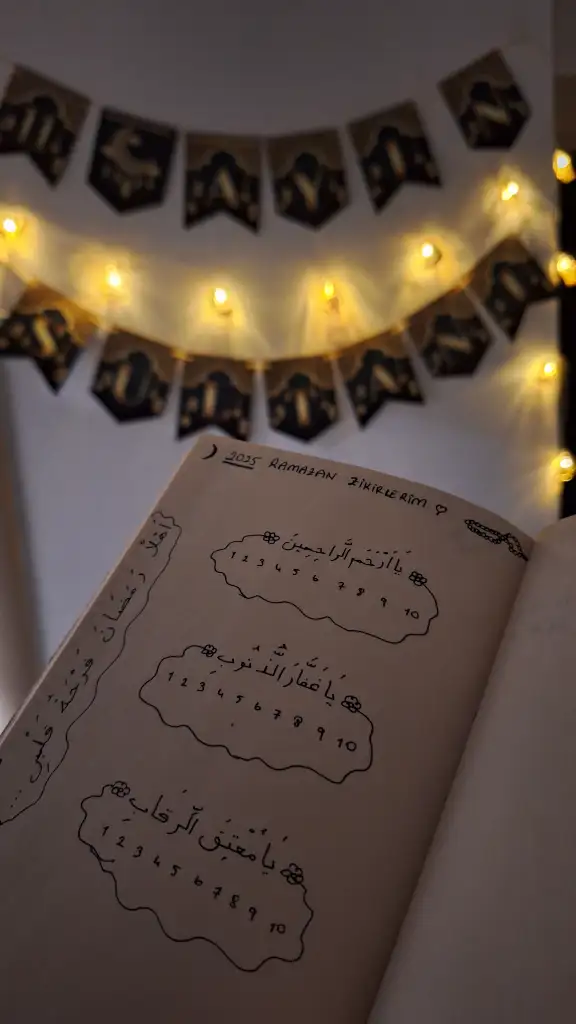 11 AYIN
SULTANI
2025 RAMAZAN ZİKİRLERİM ♡
يَا أَرْحَمَ الرَّاحِمِينَ
1 2 3 4 5 6 7 8 9 10
يَا غَفَّارَ الذُّنُوبِ
1 2 3 4 5 6 7 8 9 10
يَا مُعْتِقَ الرِّقَابِ
1 2 3 4 5 6 7 8 9 10
أَهْلًا رَمَضَانَ فَرْحَةُ قَلْبِي ...